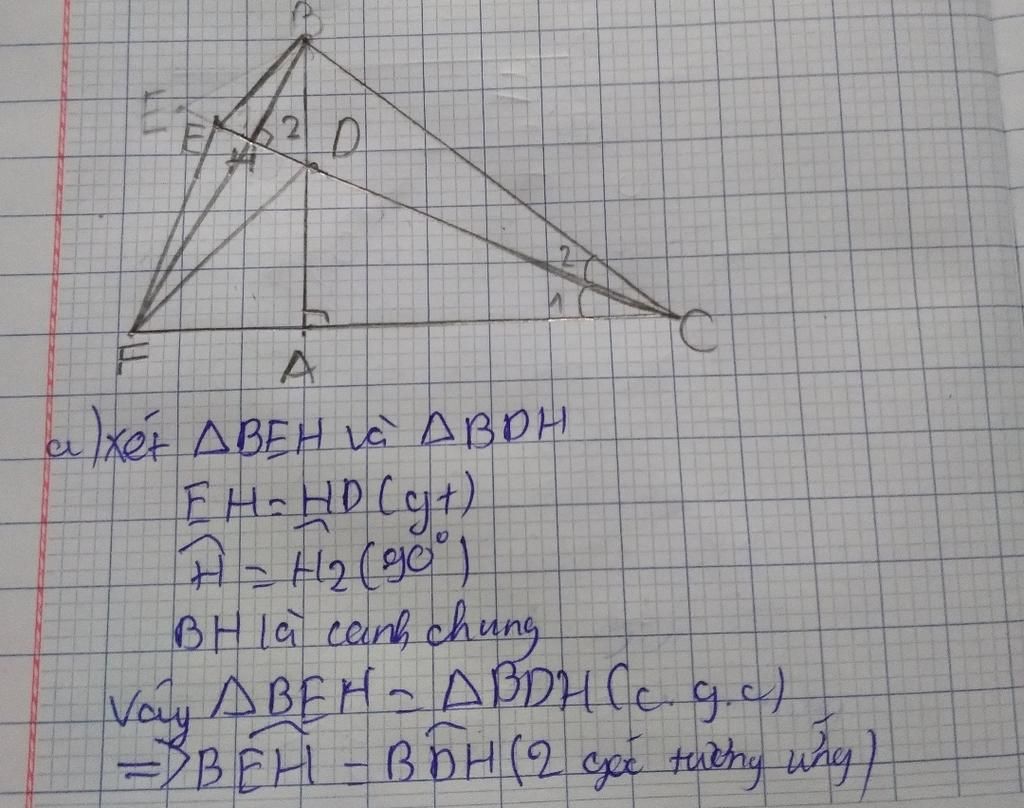 B
E
E
2
D
H
2
1
C
F
A
a) Xét ΔBEH và ΔBDH
EH = HD (gt)
Ĥ = Ĥ2 (90°)
BH là cạnh chung
Vậy ΔBEH = ΔBDH (c.g.c)
=> BÊH = BD̂H (2 góc tương ứng)